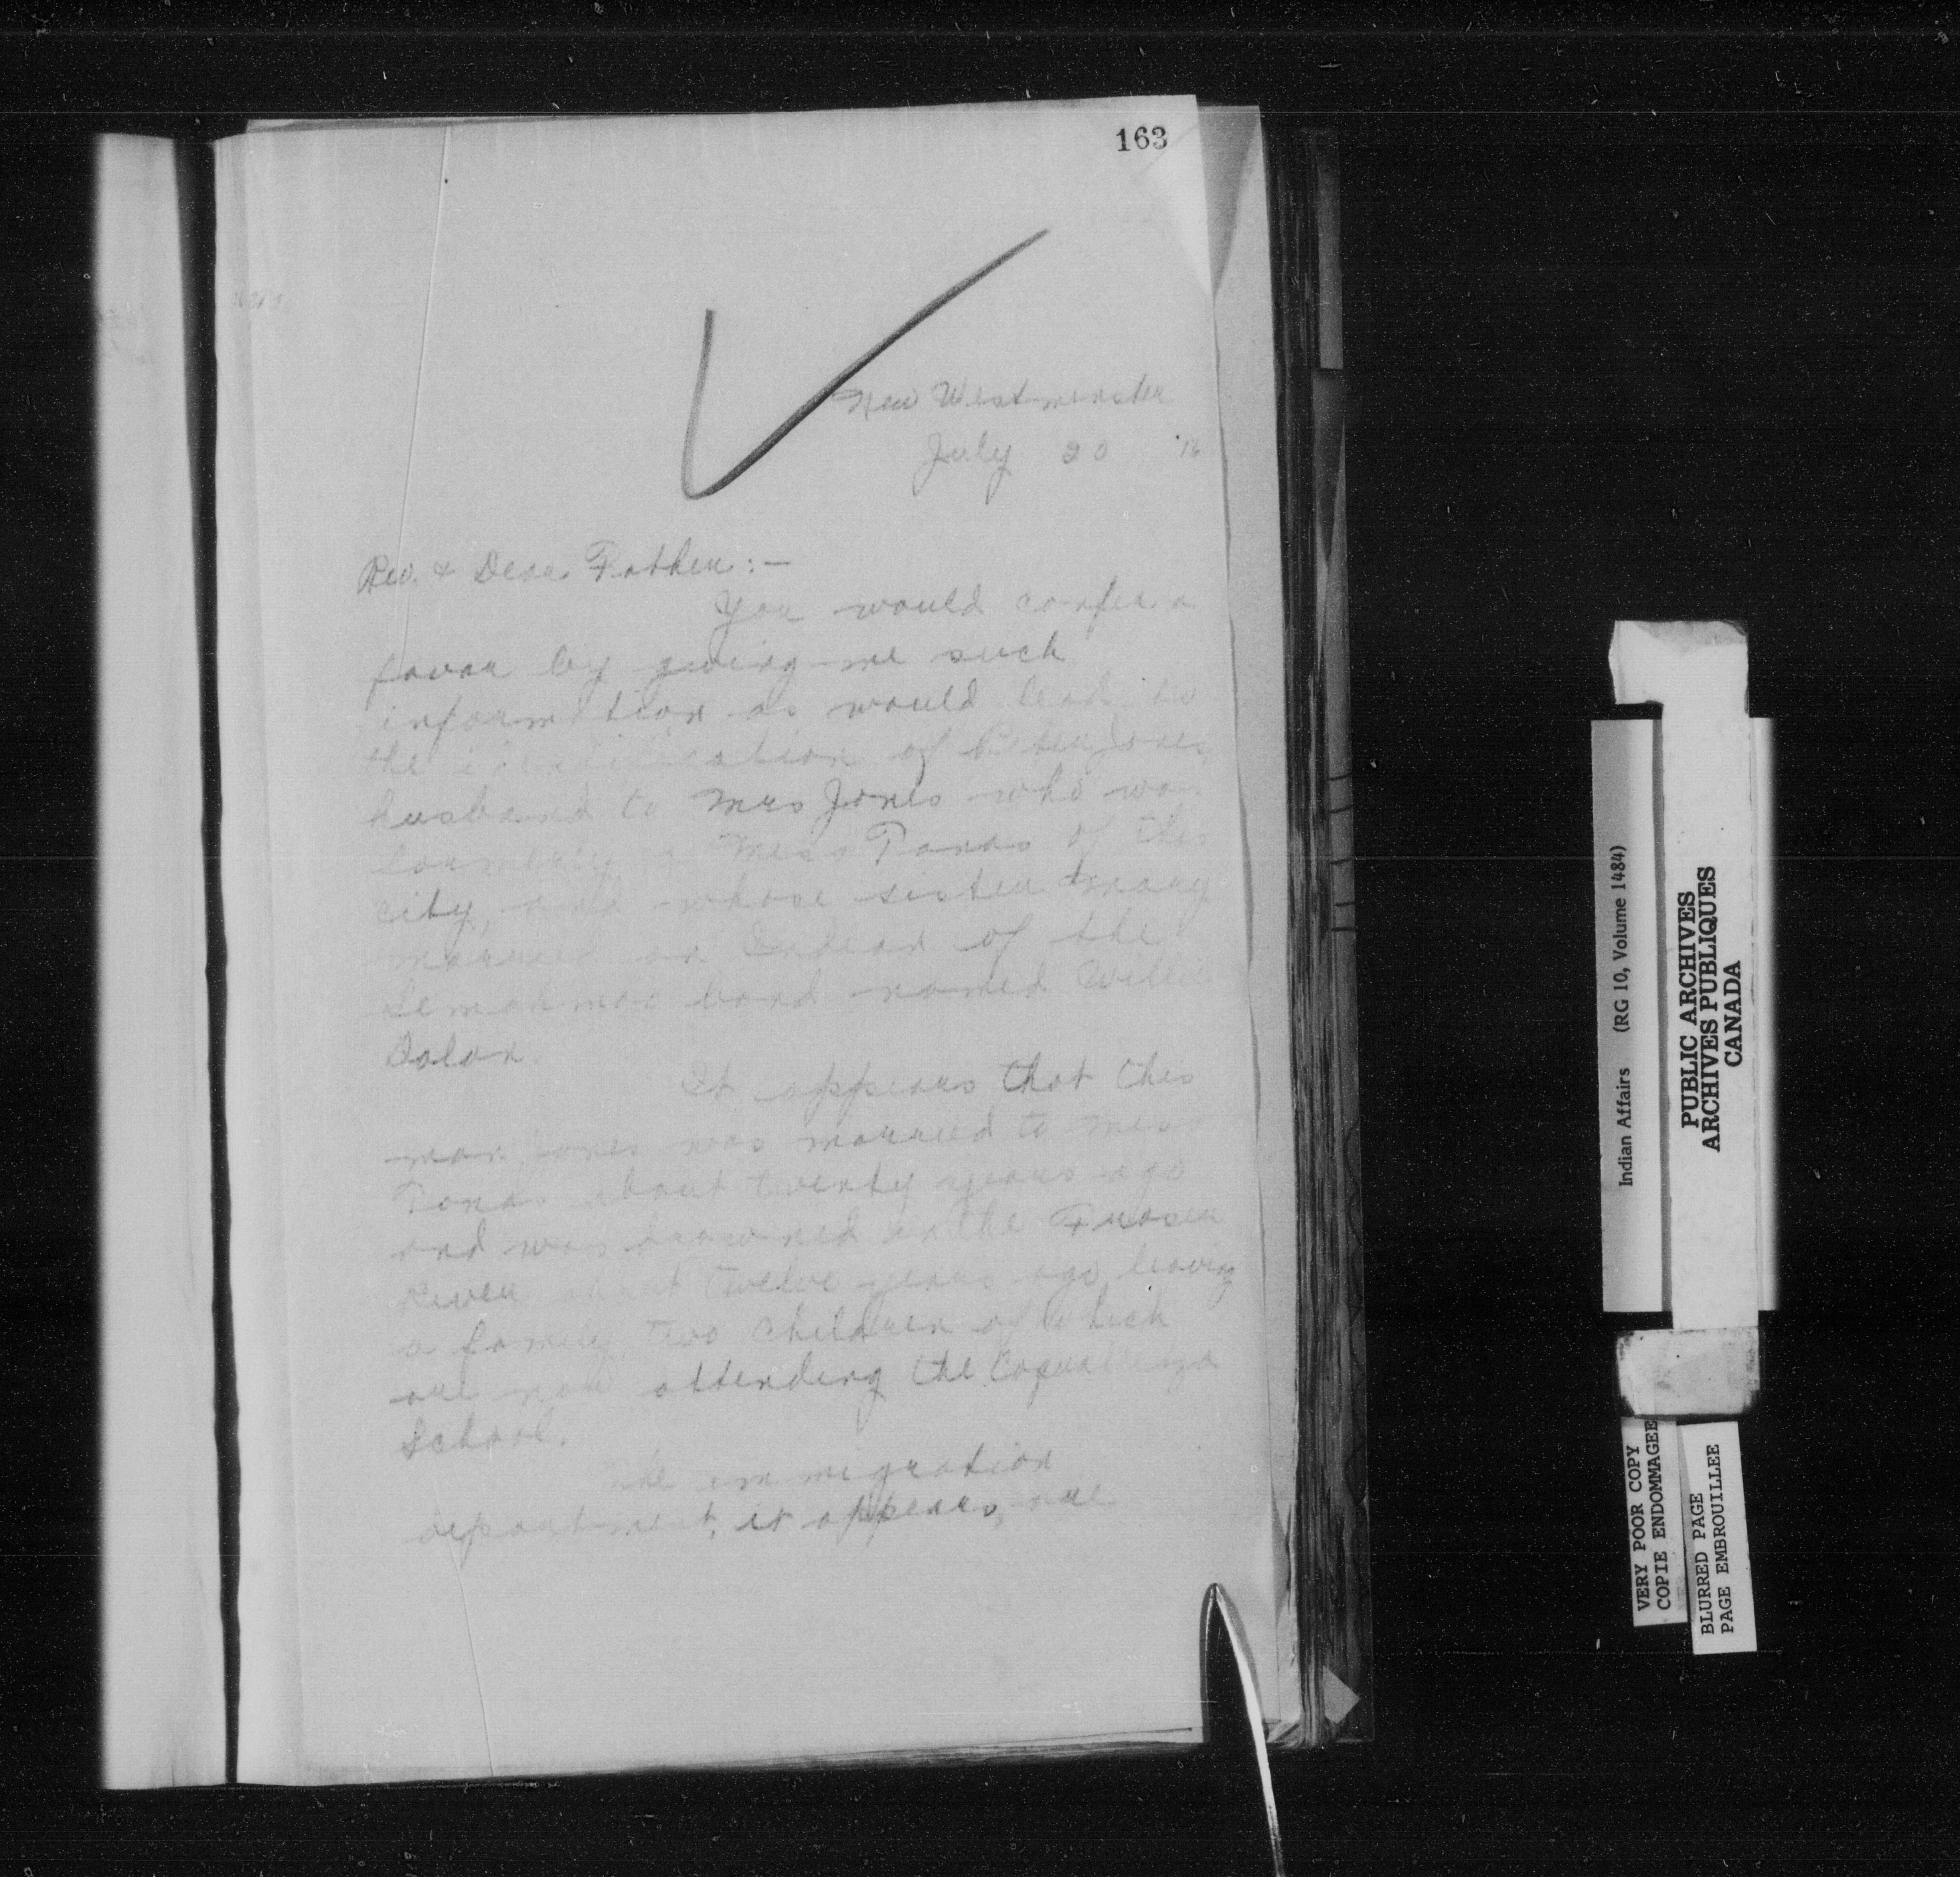 163
New Westminster
July 20 '16
Rev. & Dear Father:—
You would confer a
favor by giving me such
information as would lead to
the identification of Peter Jones,
husband to Mrs Jones who was
formerly a Miss Panas of this
city, and whose sister Mary
married an Indian of the
Semiahmoo band named Willie
Dolan.
It appears that this
man Jones was married to Miss
about twenty years ago
and was drowned in the Fraser
River about twelve years ago, leaving
a family two children of which
are now attending the
School.
The immigration
department, it appears, are
Indian Affairs (RG 10, Volume 1484)
PUBLIC ARCHIVES
ARCHIVES PUBLIQUES
CANADA
VERY POOR COPY
COPIE ENDOMMAGEE
BLURRED PAGE
PAGE EMBROUILLEE